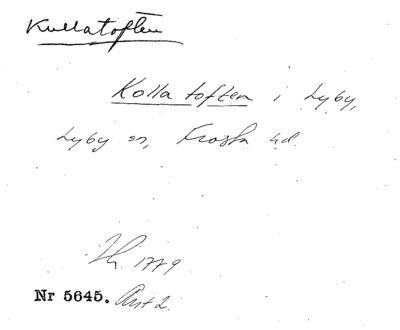 Kullatoften
Kolla toften i Lyby,
Lyby sn, Frosta hd.
Th. 1779
Nr 5645. Avst 2.